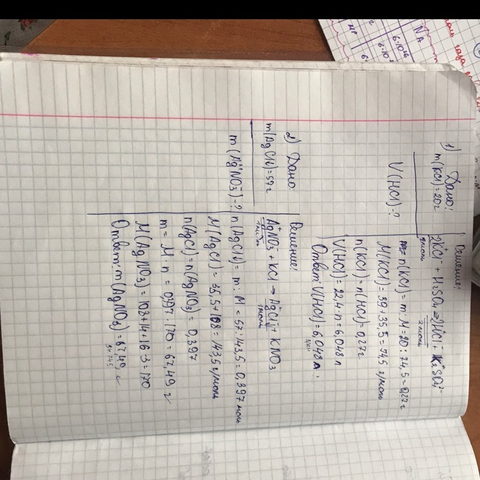 1) Дано:
m(KCl)=20г
V(HCl)-?
Решение:
2KCl + H₂SO₄ → 2HCl + K₂SO₄
n(KCl) = m:M = 20:74,5 = 0,27г
M(KCl) = 39+35,5 = 74,5 г/моль
n(KCl) = n(HCl) = 0,27г
V(HCl) = 22,4·n = 6,048 л
Ответ: V(HCl) = 6,048 л.
2) Дано
m(AgCl↓)=57г
m(AgNO₃)-?
Решение:
AgNO₃ + KCl → AgCl↓ + KNO₃
n(AgCl↓) = m:M = 57:143,5 = 0,397 моль
M(AgCl) = 35,5+108 = 143,5 г/моль
n(AgCl) = n(AgNO₃) = 0,397
m = M·n = 0,397·170 = 67,49 г
M(AgNO₃) = 108+14+16·3 = 170
Ответ: m(AgNO₃) = 67,49 г